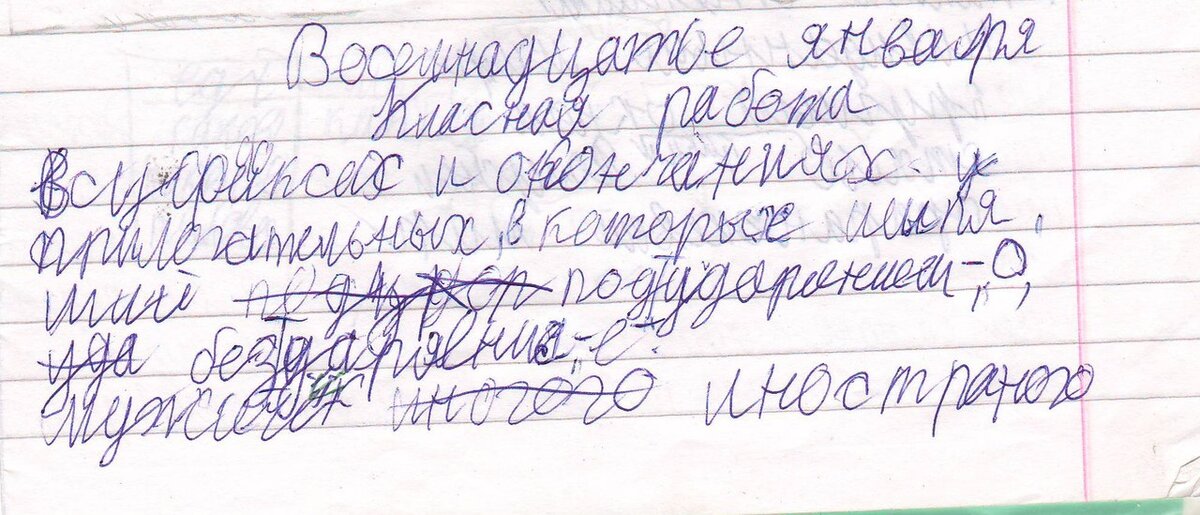 Восемнадцатое января
Класная работа
В суффиксах и окончаниях у
прилогательных, в которых
под ударением - О,
без ударения - е.
иностраного